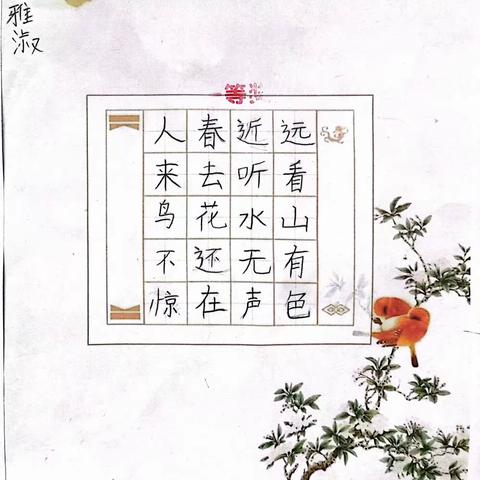 雅淑
远看山有色
近听水无声
春去花还在
人来鸟不惊